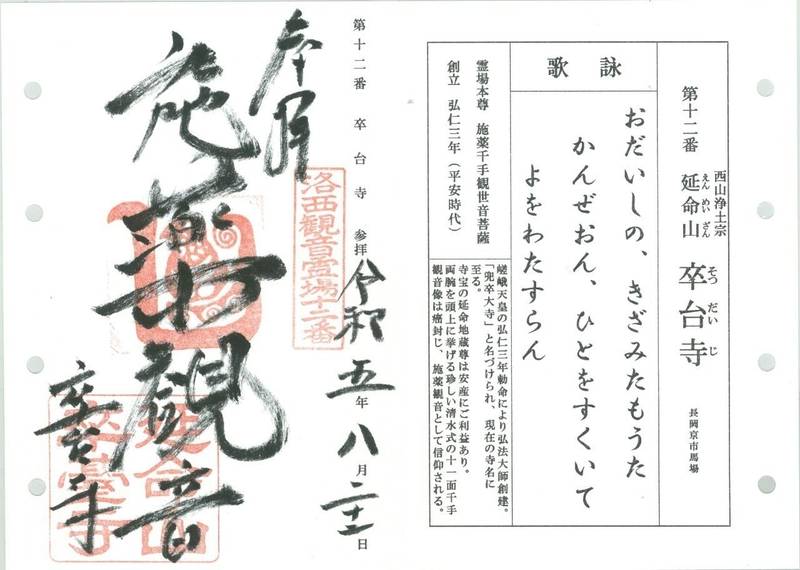 第十二番
西山浄土宗
延命山 卒台寺
えんめいざん そつだいじ
長岡京市馬場
詠歌
おだいしの、きざみたもうた
かんぜおん、ひとをすくいて
よをわたすらん
霊場本尊 施薬千手観世音菩薩
創立 弘仁三年（平安時代）
嵯峨天皇の弘仁三年勅命により弘法大師創建。
「兜卒大寺」と名づけられ、現在の寺名に
至る。
寺宝の延命地蔵尊は安産にご利益あり。
両腕を頭上に挙げる珍しい清水式の十一面千手
観音像は癌封じ、施薬観音として信仰される。
第十二番 卒台寺 参拝 令和五年八月二十一日
洛西観音霊場十二番
奉拝
施薬観音
卒台寺
延命山
卒臺寺